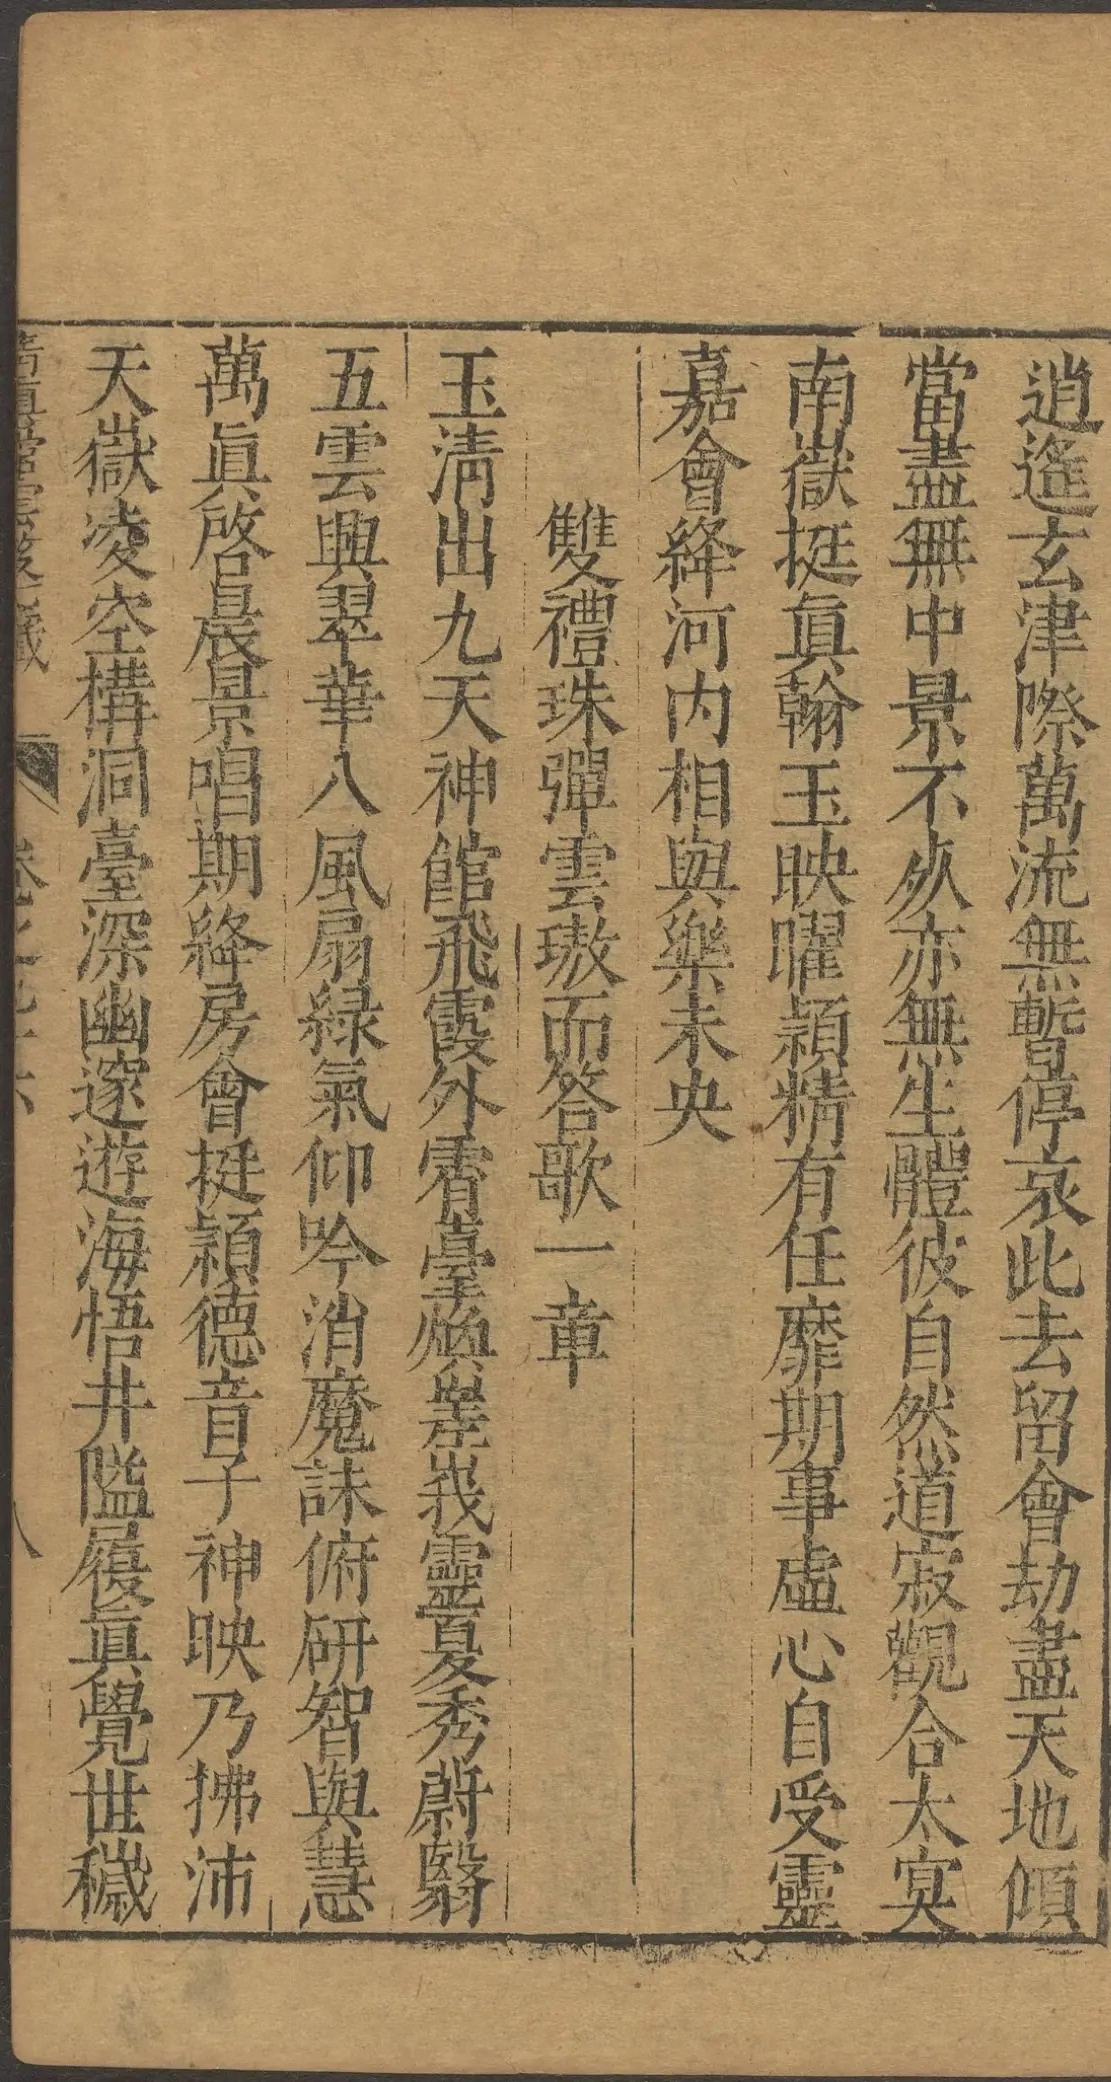 逍遙玄津際萬流無暫停哀此去留會劫盡天地傾
當盡無中景不死亦無生體彼自然道寂觀合太冥
南嶽挺眞翰玉映曜穎精有任靡期事虛心自受靈
嘉會絳河内相與樂未央
雙禮珠彈雲璈而答歌一章
玉清出九天神館飛霞外霄臺煥嵳峩靈夏秀蔚翳
五雲興翠華八風扇緑氣仰吟消魔詠俯研智與慧
萬眞啓晨景唱期絳房會挺穎德音子神映乃拂沛
天嶽凌空構洞臺深幽邃遊海悟井隘履眞覺世穢
清眞堂雲笈七籤 卷之九十六 八